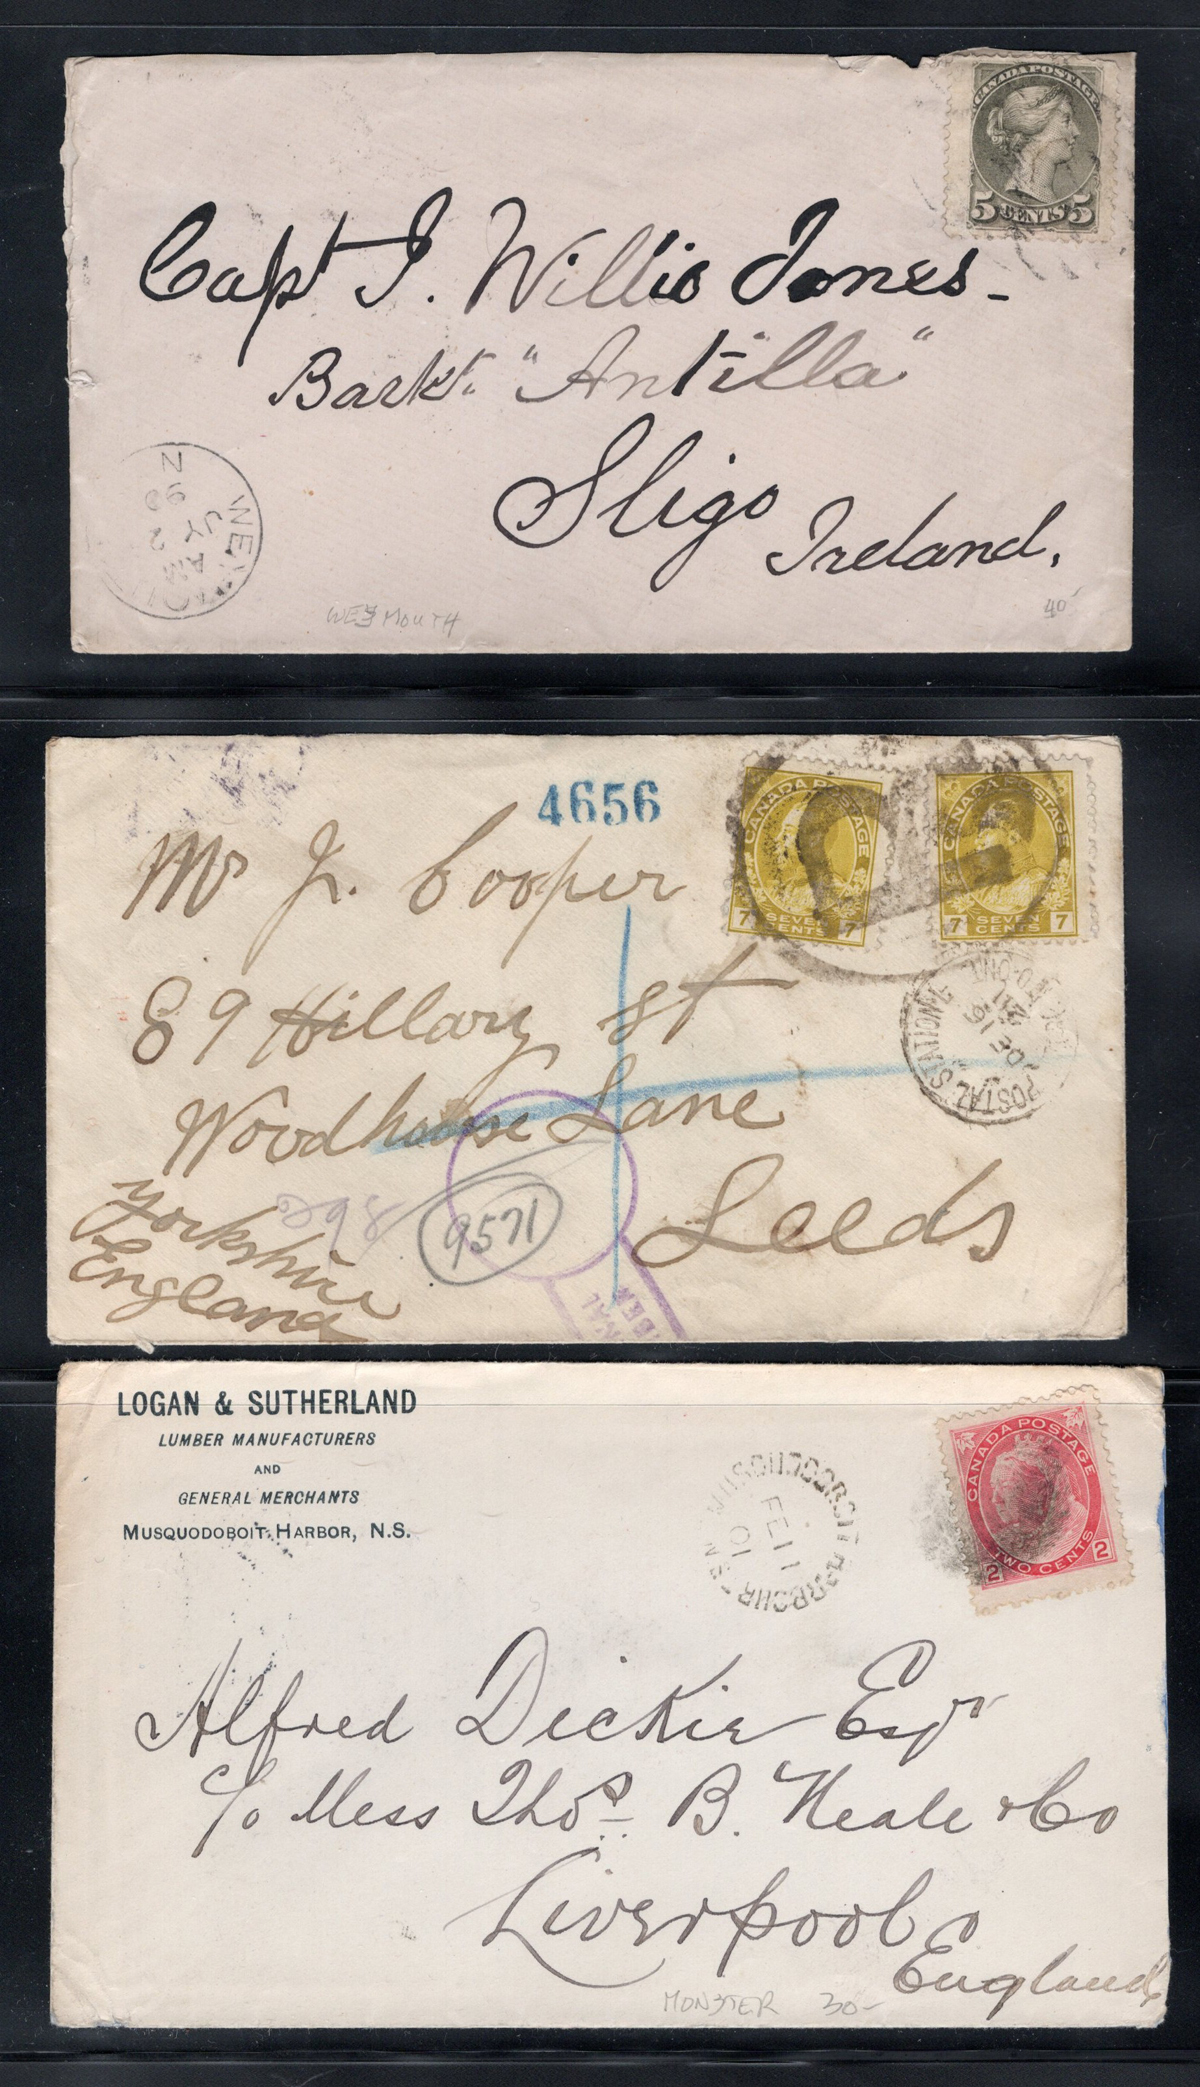 CANADA POSTAGE
5 CENTS 5
Capt J. Willis Jones -
Barkt. "Antilla"
Sligo
Ireland.
AM
JY 2
N
WEYMOUTH
40
4656
CANADA POSTAGE
7 SEVEN CENTS 7
CANADA POSTAGE
7 SEVEN CENTS 7
R
Mr J. Cooper
89 Hillary St
Woodhouse Lane
Leeds
Yorkshire
England
POSTAL STATION
ONT.
9571
LOGAN & SUTHERLAND
LUMBER MANUFACTURERS
AND
GENERAL MERCHANTS
MUSQUODOBOIT HARBOR, N.S.
MUSQUODOBOIT HARBOUR N.S.
FE 11
01
CANADA POSTAGE
2 TWO CENTS 2
Alfred Dickie Esqr
c/o Mess Thos. B. Neale & Co
Liverpool
England
30-